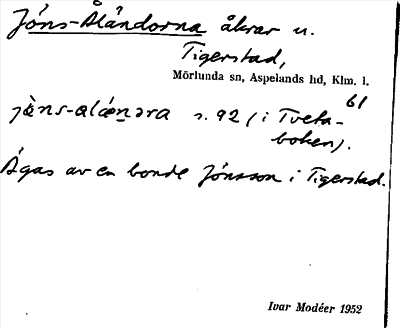 Jöns-Åländorna åkrar u.
Tigerstad,
Mörlunda sn, Aspelands hd, Klm. l.
61
jò̀ns-alǽnəra s. 92 (i Tveta-
boken).
Ägas av en bonde Jönsson i Tigerstad.
Ivar Modéer 1952